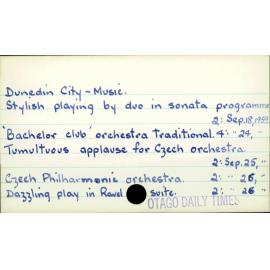 Dunedin City - Music.
Stylish playing by duo in sonata programme
2: Sep. 18, 1959
"Bachelor club" orchestra Traditional. 4: " 24, "
Tumultuous applause for Czech orchestra.
2: Sep. 25, "
Czech Philharmonic orchestra. 2: " 26, "
Dazzling play in Ravel suite. 2: " 26 "
OTAGO DAILY TIMES